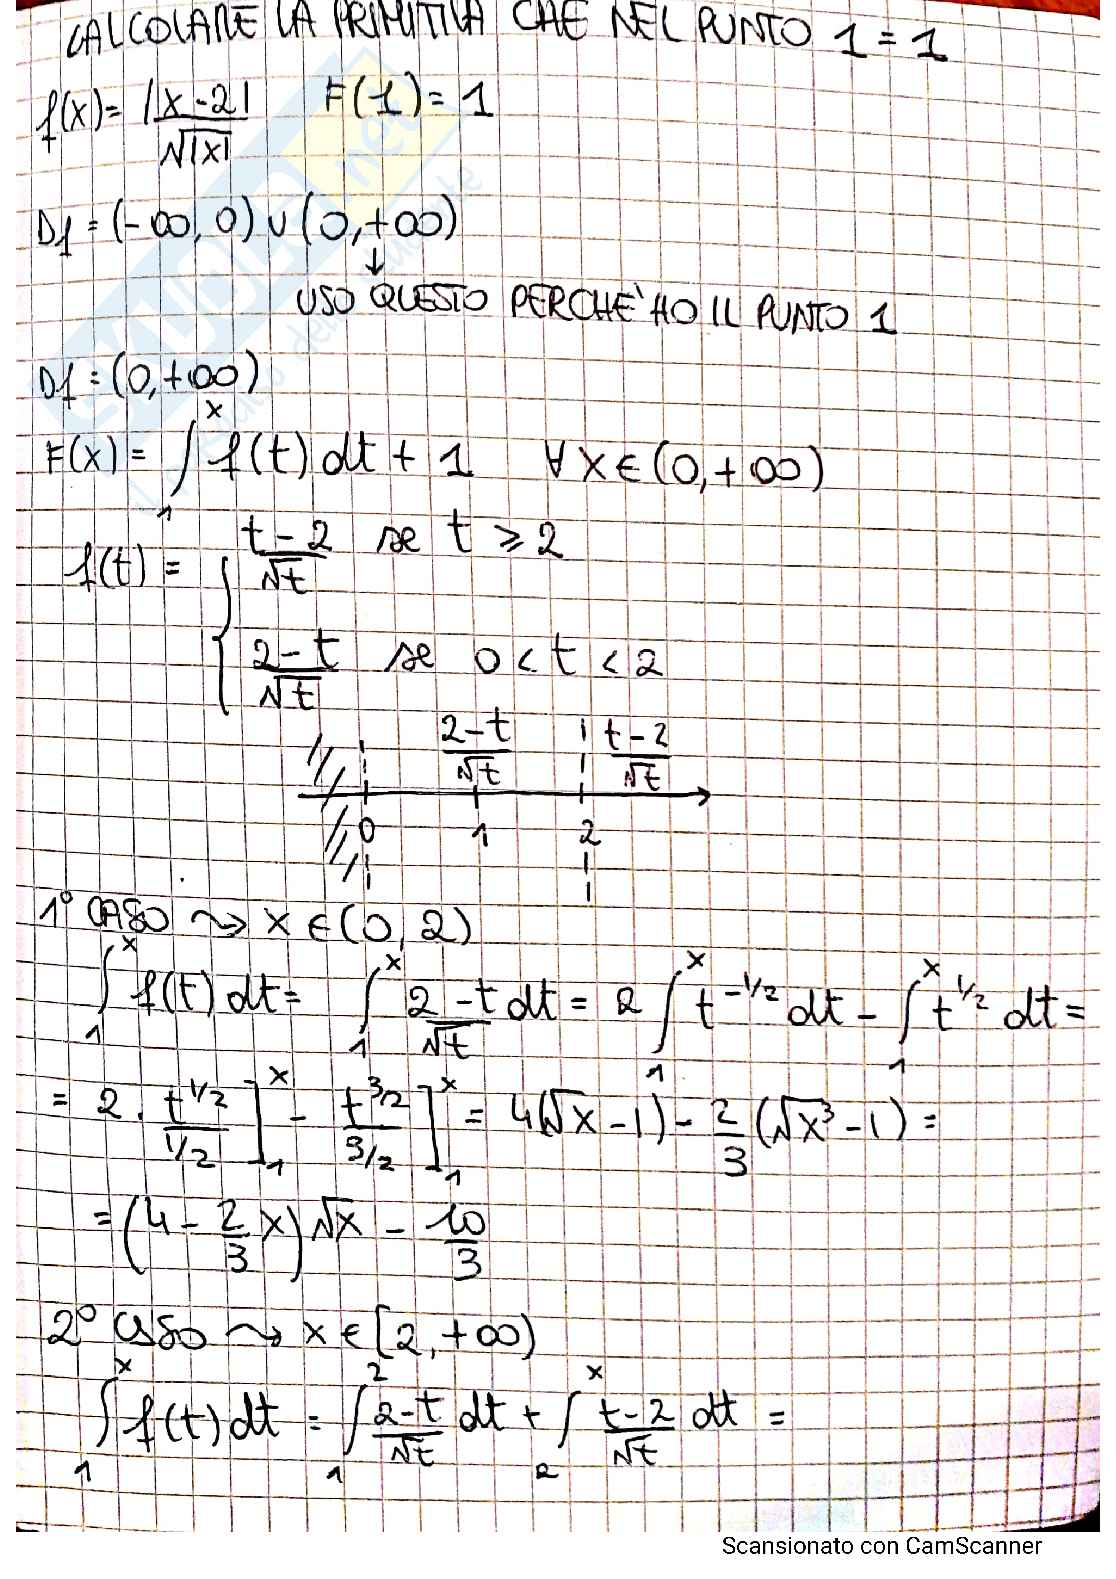 CALCOLARE LA PRIMITIVA CHE NEL PUNTO 1 = 1
f(x) = |x-2| / √|x|    F(1) = 1
Df = (-∞, 0) ∪ (0, +∞)
↓
USO QUESTO PERCHE' HO IL PUNTO 1
Df = (0, +∞)
F(x) = ∫₁ˣ f(t) dt + 1    ∀ x ∈ (0, +∞)
f(t) = { (t-2)/√t se t ≥ 2
(2-t)/√t se 0 < t < 2
(2-t)/√t    (t-2)/√t
0 1 2
1° CASO ⇝ x ∈ (0, 2)
∫₁ˣ f(t) dt = ∫₁ˣ (2-t)/√t dt = 2 ∫₁ˣ t^(-1/2) dt - ∫₁ˣ t^(1/2) dt =
= 2 · t^(1/2)/(1/2) ]₁ˣ - t^(3/2)/(3/2) ]₁ˣ = 4(√x - 1) - 2/3 (√x³ - 1) =
= (4 - 2/3 x) √x - 10/3
2° CASO ⇝ x ∈ [2, +∞)
∫₁ˣ f(t) dt = ∫₁² (2-t)/√t dt + ∫₂ˣ (t-2)/√t dt =
Scansionato con CamScanner